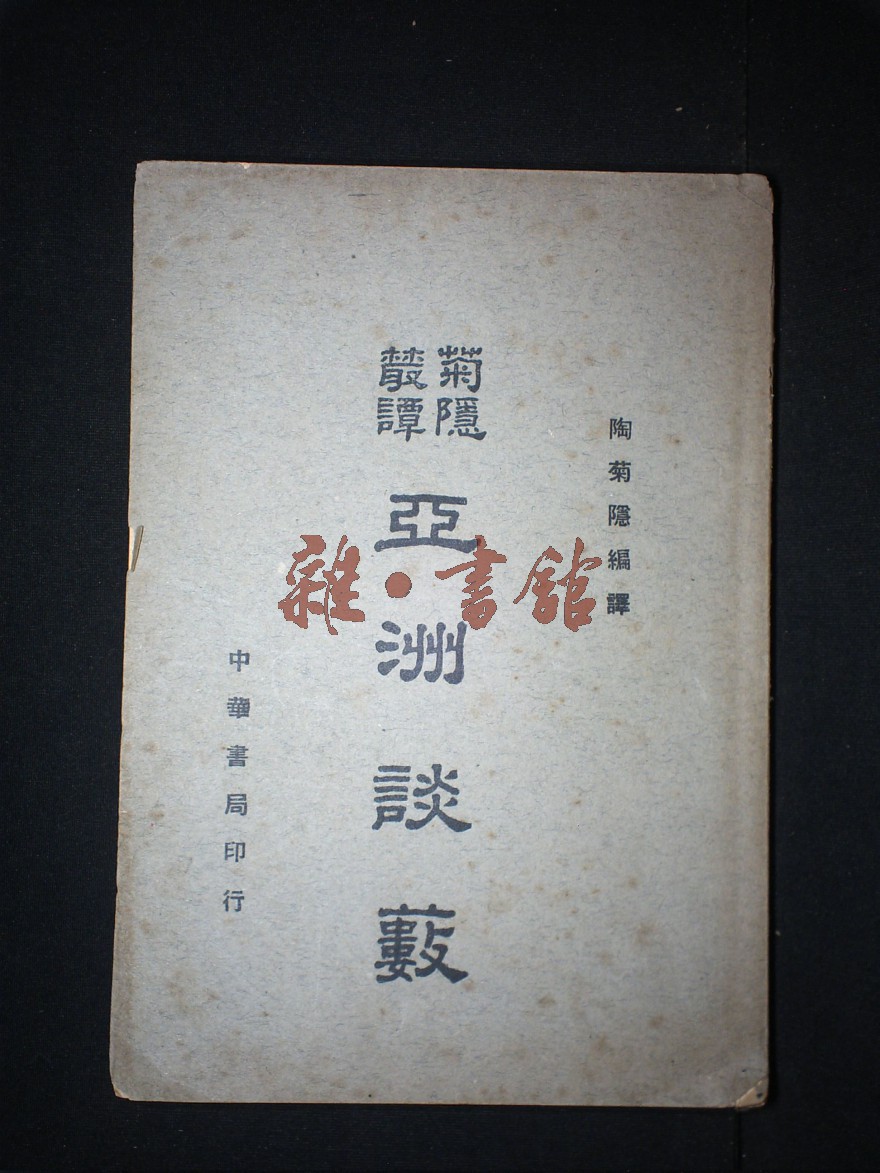 陶菊隱編譯
菊隱
叢譚
亞洲談藪
中華書局印行
雜·書館